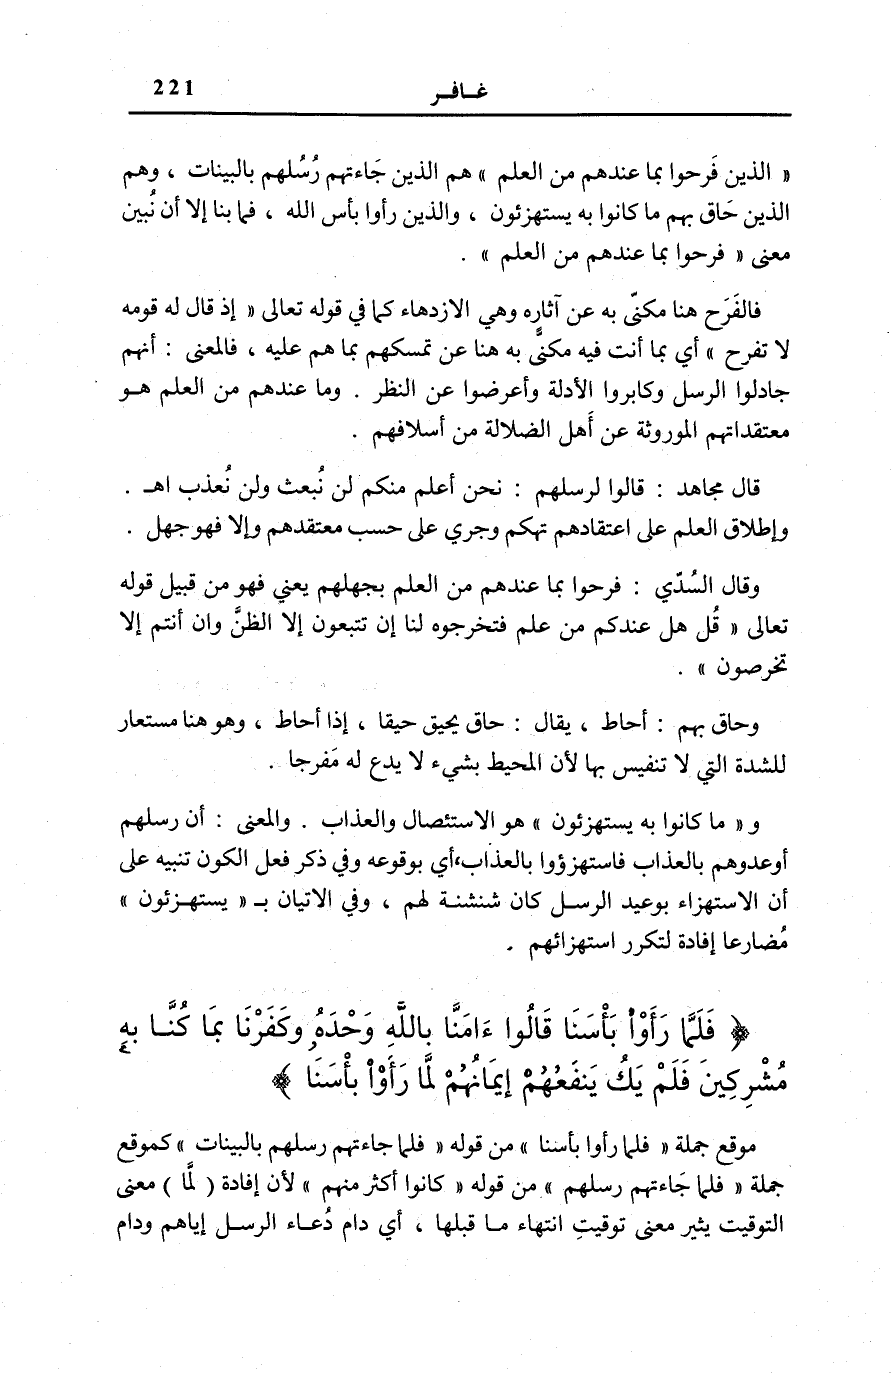 غـافـر
221
« الذين فَرحوا بما عندهم من العلم » هم الذين جَاءتهم رُسُلهم بالبينات ، وهم
الذين حَاق بهم ما كانوا به يستهزئون ، والذين رأوا بأس الله ، فما بنا إلا أن نُبين
معنى « فرحوا بما عندهم من العلم » .
فالفَرَح هنا مكنىّ به عن آثاره وهي الازدهاء كما في قوله تعالى « إذ قال له قومه
لا تفرح » أي بما أنت فيه مكنًّى به هنا عن تمسكهم بما هم عليه ، فالمعنى : أنهم
جادلوا الرسل وكابروا الأدلة وأعرضوا عن النظر . وما عندهم من العلم هـو
معتقداتهم الموروثة عن أَهل الضلالة من أسلافهم .
قال مجاهد : قالوا لرسلهم : نحن أعلم منكم لن نُبعث ولن نُعذب اهـ .
وإطلاق العلم على اعتقادهم تهكم وجري على حسب معتقدهم وإلا فهو جهل .
وقال السُدّي : فرحوا بما عندهم من العلم بجهلهم يعني فهو من قبيل قوله
تعالى « قُل هل عندكم من علم فتخرجوه لنا إن تتبعون إلا الظنَّ وان أنتم إلا
تخرصون » .
وحاق بهم : أحاط ، يقال : حاق يحيق حيقا ، إذا أحاط ، وهو هنا مستعار
للشدة التي لا تنفيس بها لأن المحيط بشيء لا يدع له مَفرجا .
و « ما كانوا به يستهزئون » هو الاستئصال والعذاب . والمعنى : أن رسلهم
أوعدوهم بالعذاب فاستهزؤوا بالعذاب،أي بوقوعه وفي ذكر فعل الكون تنبيه على
أن الاستهزاء بوعيد الرسـل كان شنشنـة لهم ، وفي الاتيان بـ « يستهـزئون »
مُضارعا إفادة لتكرر استهزائهم .
﴿ فَلَمَّا رَأَوْاْ بَأْسَنَا قَالُوا ءَامَنَّا بِاللَّهِ وَحْدَهُۥ وَكَفَرْنَا بِمَا كُنَّـا بِهِۦ
مُشْرِكِينَ فَلَمْ يَكُ يَنفَعُهُمْ إِيمَانُهُمْ لَمَّا رَأَوْاْ بَأْسَنَا ﴾
موقع جملة « فلما رأوا بأسنا » من قوله « فلما جاءتهم رسلهم بالبينات » كموقع
جملة « فلما جَاءتهم رسلهم » من قوله « كانوا أكثر منهم » لأن إفادة ( لَمَّا ) معنى
التوقيت يثير معنى توقيتِ انتهاء مـا قبلها ، أي دام دُعـاء الرسـل إياهم ودام